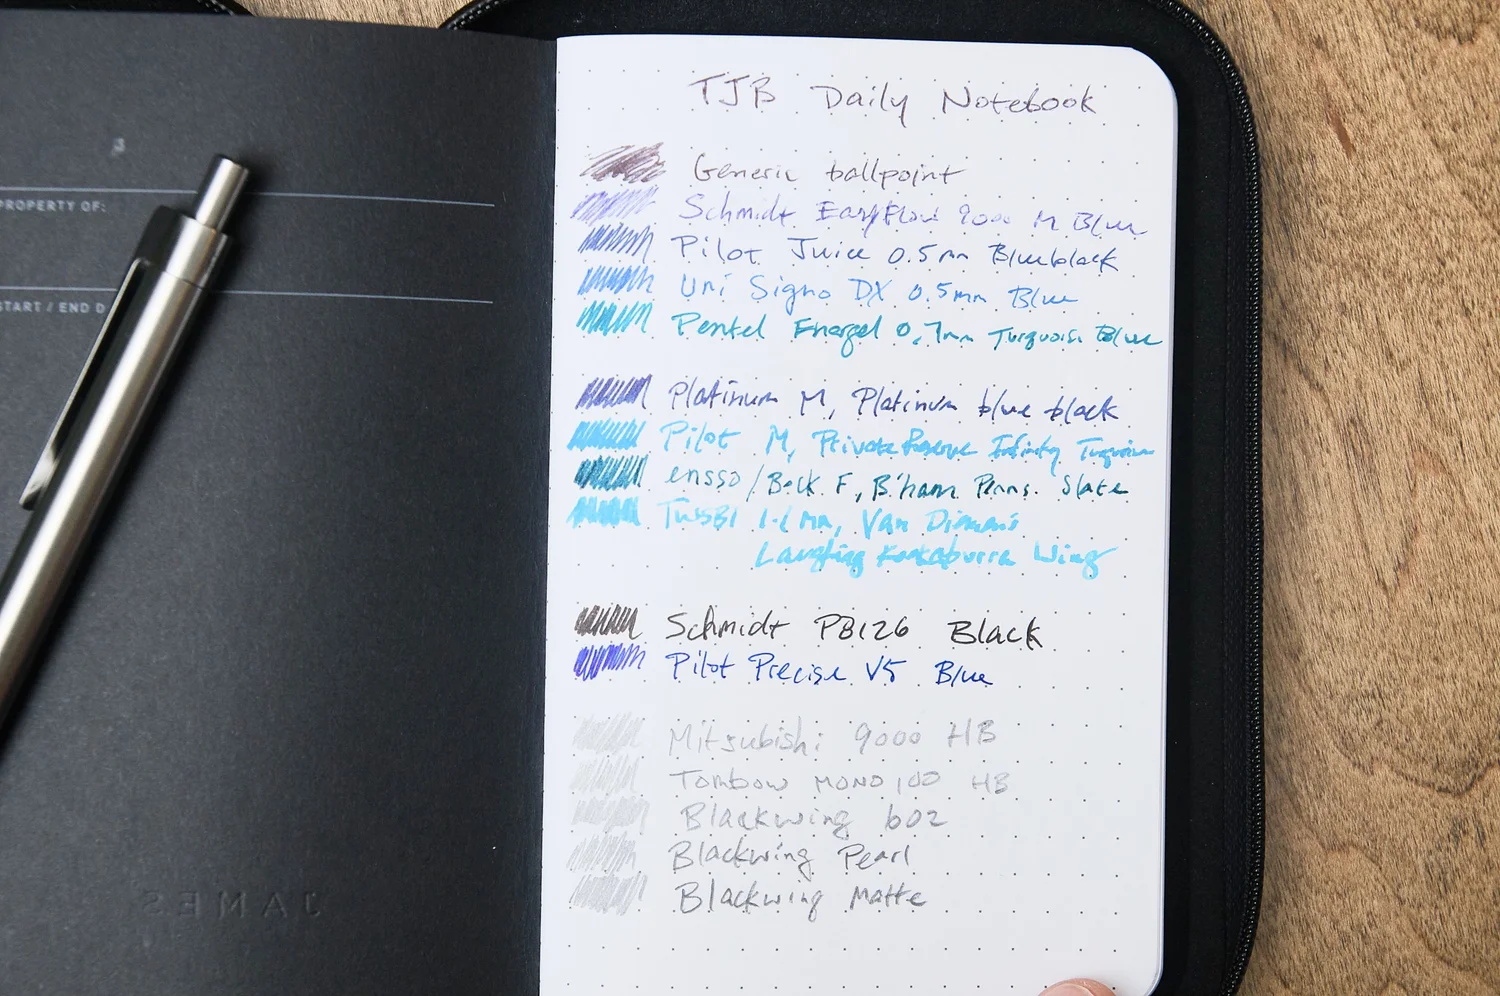 PROPERTY OF:
START / END D
JAMES
TJB Daily Notebook
Generic ballpoint
Schmidt EasyFlow 9000 M Blue
Pilot Juice 0.5mm Blueblack
Uni Signo DX 0.5mm Blue
Pentel Energel 0.7mm Turquoise Blue
Platinum M, Platinum blue black
Pilot M, Private Reserve Infinity Turquoise
ensso/Bock F, B'ham Penns. Slate
TWSBI 1.1mm, Van Dieman's
Laughing Kookaburra Wing
Schmidt P8126 Black
Pilot Precise V5 Blue
Mitsubishi 9000 HB
Tombow MONO 100 HB
Blackwing 602
Blackwing Pearl
Blackwing Matte